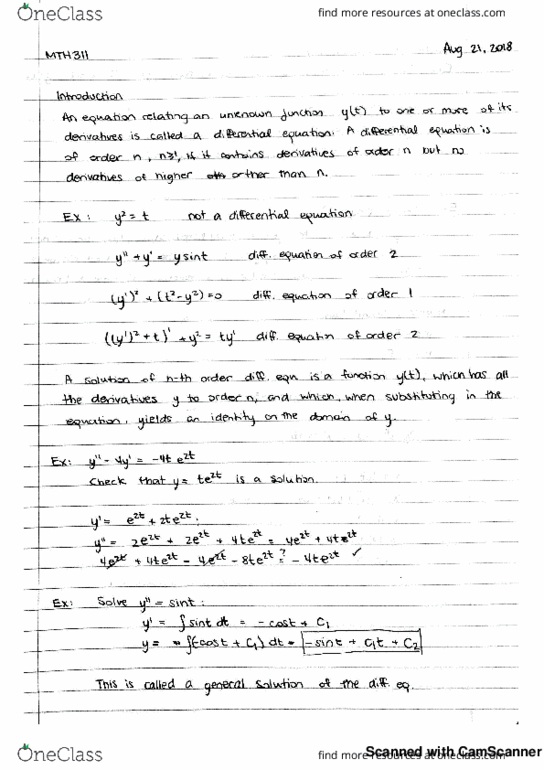 OneClass find more resources at oneclass.com
MTH311 Aug 21, 2018
Introduction
An equation relating an unknown function y(t) to one or more of its
derivatives is called a differential equation. A differential equation is
of order n, n≥1, if it contains derivatives of order n but no
derivatives of higher orther than n.
Ex: y² = t not a differential equation
y" + y' = y sint diff. equation of order 2
(y')² + (t²-y²)=0 diff. equation of order 1
((y')² + t)' + y² = ty' diff equatin of order 2
A solution of n-th order diff. eqn is a function y(t), which has all
the derivatives y to order n, and which, when substituting in the
equation, yields an identity on the domain of y.
Ex: y" - 4y' = -4t e^2t
Check that y = te^2t is a solution.
y' = e^2t + 2te^2t;
y" = 2e^2t + 2e^2t + 4te^2t = 4e^2t + 4te^2t
4e^2t + 4te^2t - 4e^2t - 8te^2t ?= -4te^2t ✓
Ex: Solve y" = sint:
y' = ∫sint dt = -cost + C₁
y = = ∫(-cost + C₁) dt = -sint + C₁t + C₂
This is called a general solution of the diff. eq.
OneClass find more resources at oneclass.com
Scanned with CamScanner